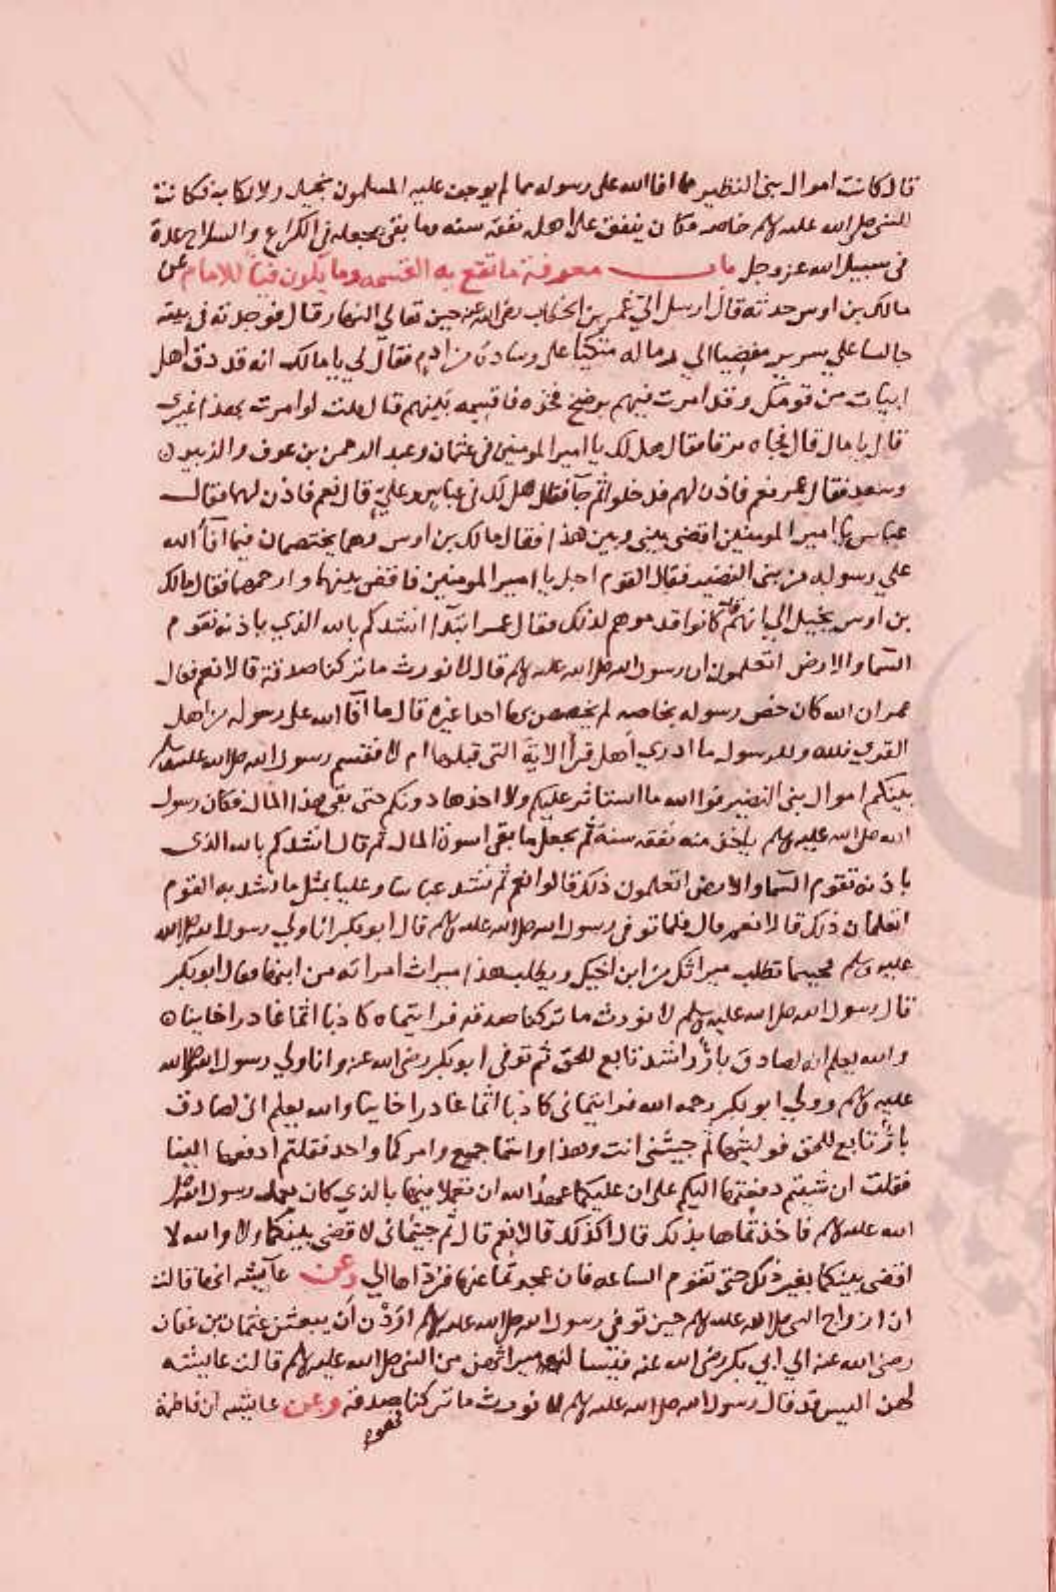 قال كانت اموال بنى النظير مما افا الله على رسوله مما لم يوجف عليه المسلمون بخيل ولا ركاب فكانت
للنبى صلى الله عليه وسلم خاصه فكان ينفق على اهله نفقة سنه وما بقى يجعله فى الكراع والسلاح عدة
فى سبيل الله عز وجل باب معرفة ما تقع به القسمه وما يكون فيئا للامام عن
مالك بن اوس حدثه قال ارسل الي عمر بن الخطاب رضى الله عنه حين تعالي النهار قال فوجدته فى بيته
جالسا علي سرير مفضيا الي رماله متكيا على وسادة من ادم فقال لي يا مالك انه قد دق اهل
ابيات من قومك وقد امرت فيهم برضخ فخذه فاقسمه بينهم قال قلت لو امرت بهذا غيرى
قال يا مال قال فجاه يرفا فقال هل لك يا امير المومنين فى عثمان وعبد الرحمن بن عوف والزبير
وسعد فقال عمر نعم فاذن لهم فدخلوا ثم جآ فقال هل لك فى عباس وعلي قال نعم فاذن لهما فقال
عباس يا امير المومنين اقضى بينى وبين هذا فقال مالك بن اوس وهما يختصمان فيما افآ الله
علي رسوله من بنى النضير فقال القوم اجل يا امير المومنين فاقض بينهما وارحمهما فقال مالك
بن اوس يخيل الي انهم كانوا قدموهم لذلك فقال عمر اتيدا انشدكم بالله الذي باذنه تقوم
السما والارض اتعلمون ان رسول الله صلى الله عليه وسلم قال لا نورث ما تركنا صدقة قالا نعم فقال
عمر ان الله كان خص رسوله بخاصه لم يخصص بها احدا غيره قال ما آفا الله على رسوله من اهل
القرى فلله وللرسول ما ادري اهل قرأ الاية التى قبلها ام لا فقسم رسول الله صلى الله عليه وسلم
بينكم اموال بنى النضير فوا الله ما استاثر عليكم ولا اخذها دونكم حتى بقى هذا المال فكان رسول
الله صلى الله عليه وسلم ياخذ منه نفقة سنة ثم يجعل ما بقى اسوة المال ثم قال انشدكم بالله الذى
باذنه تقوم السما والارض اتعلمون ذلك قالوا نعم ثم نشد عباسا وعليا بمثل ما نشد به القوم
اتعلمان ذلك قالا نعم قال فلما توفى رسول الله صلى الله عليه وسلم قال ابو بكر انا ولي رسول الله صلى الله
عليه وسلم فجيتما تطلب ميراثك من ابن اخيك ويطلب هذا ميراث امراته من ابيها فقال ابو بكر
قال رسول الله صلى الله عليه وسلم لا نورث ما تركنا صدقه فرايتماه كاذبا اثما غادرا خاينا
والله يعلم انه لصادق بار راشد تابع للحق ثم توفى ابو بكر رضى الله عنه وانا ولي رسول الله صلى الله
عليه وسلم وولي ابو بكر رحمه الله فرايتمانى كاذبا اثما غادرا خاينا والله يعلم انى لصادق
بار تابع للحق فوليتها ثم جيتنى انت وهذا وانتما جميع وامركما واحد فقلتم ادفعها الينا
فقلت ان شيتم دفعتها اليكم على ان عليكما عهد الله ان تعملا فيها بالذي كان يعمل رسول الله صلى
الله عليه وسلم فاخذتماها بذلك قال اكذلك قالا نعم قال ثم جيتمانى لاقضى بينكما ولا والله لا
اقضى بينكما بغير ذلك حتى تقوم الساعه فان عجزتما عنها فرداها الي وعن عآيشه انها قالت
ان ازواج النبى صلى الله عليه وسلم حين توفي رسول الله صلى الله عليه وسلم اردن ان يبعثن عثمان بن عفان
رضى الله عنه الي ابي بكر رضى الله عنه فيسا لنه ميراثهن من النبى صلى الله عليه وسلم قالت عايشه
لهن اليس قد قال رسول الله صلى الله عليه وسلم لا نورث ما تركنا صدقه وعن عايشه ان فاطمة
فهو